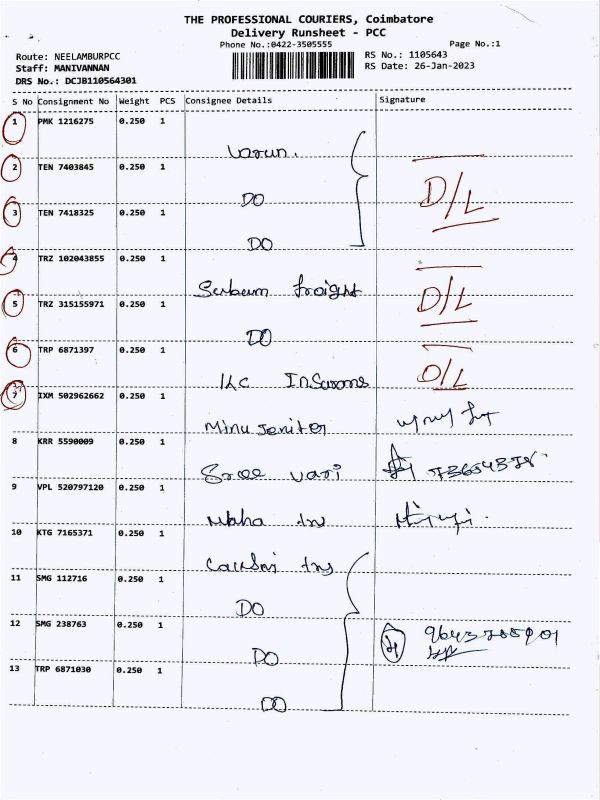 THE PROFESSIONAL COURIERS, Coimbatore
Delivery Runsheet - PCC
Phone No.:0422-3505555
Page No.:1
Route: NEELAMBURPCC
RS No.: 1105643
Staff: MANIVANNAN
RS Date: 26-Jan-2023
DRS No.: DCJB110564301
S No Consignment No Weight PCS Consignee Details Signature
1 PMK 1216275 0.250 1
Varun.
2 TEN 7403845 0.250 1
DO
D/L
3 TEN 7418325 0.250 1
DO
4 TRZ 102043855 0.250 1
freight
5 TRZ 315155971 0.250 1
DO
D/L
6 TRP 6871397 0.250 1
D/L
7 IXM 502962662 0.250 1
Minu Jenifer
8 KRR 5590009 0.250 1
Sree vari
9 VPL 520797120 0.250 1
Maha
10 KTG 7165371 0.250 1
11 SMG 112716 0.250 1
DO
12 SMG 238763 0.250 1
DO
13 TRP 6871030 0.250 1
DO